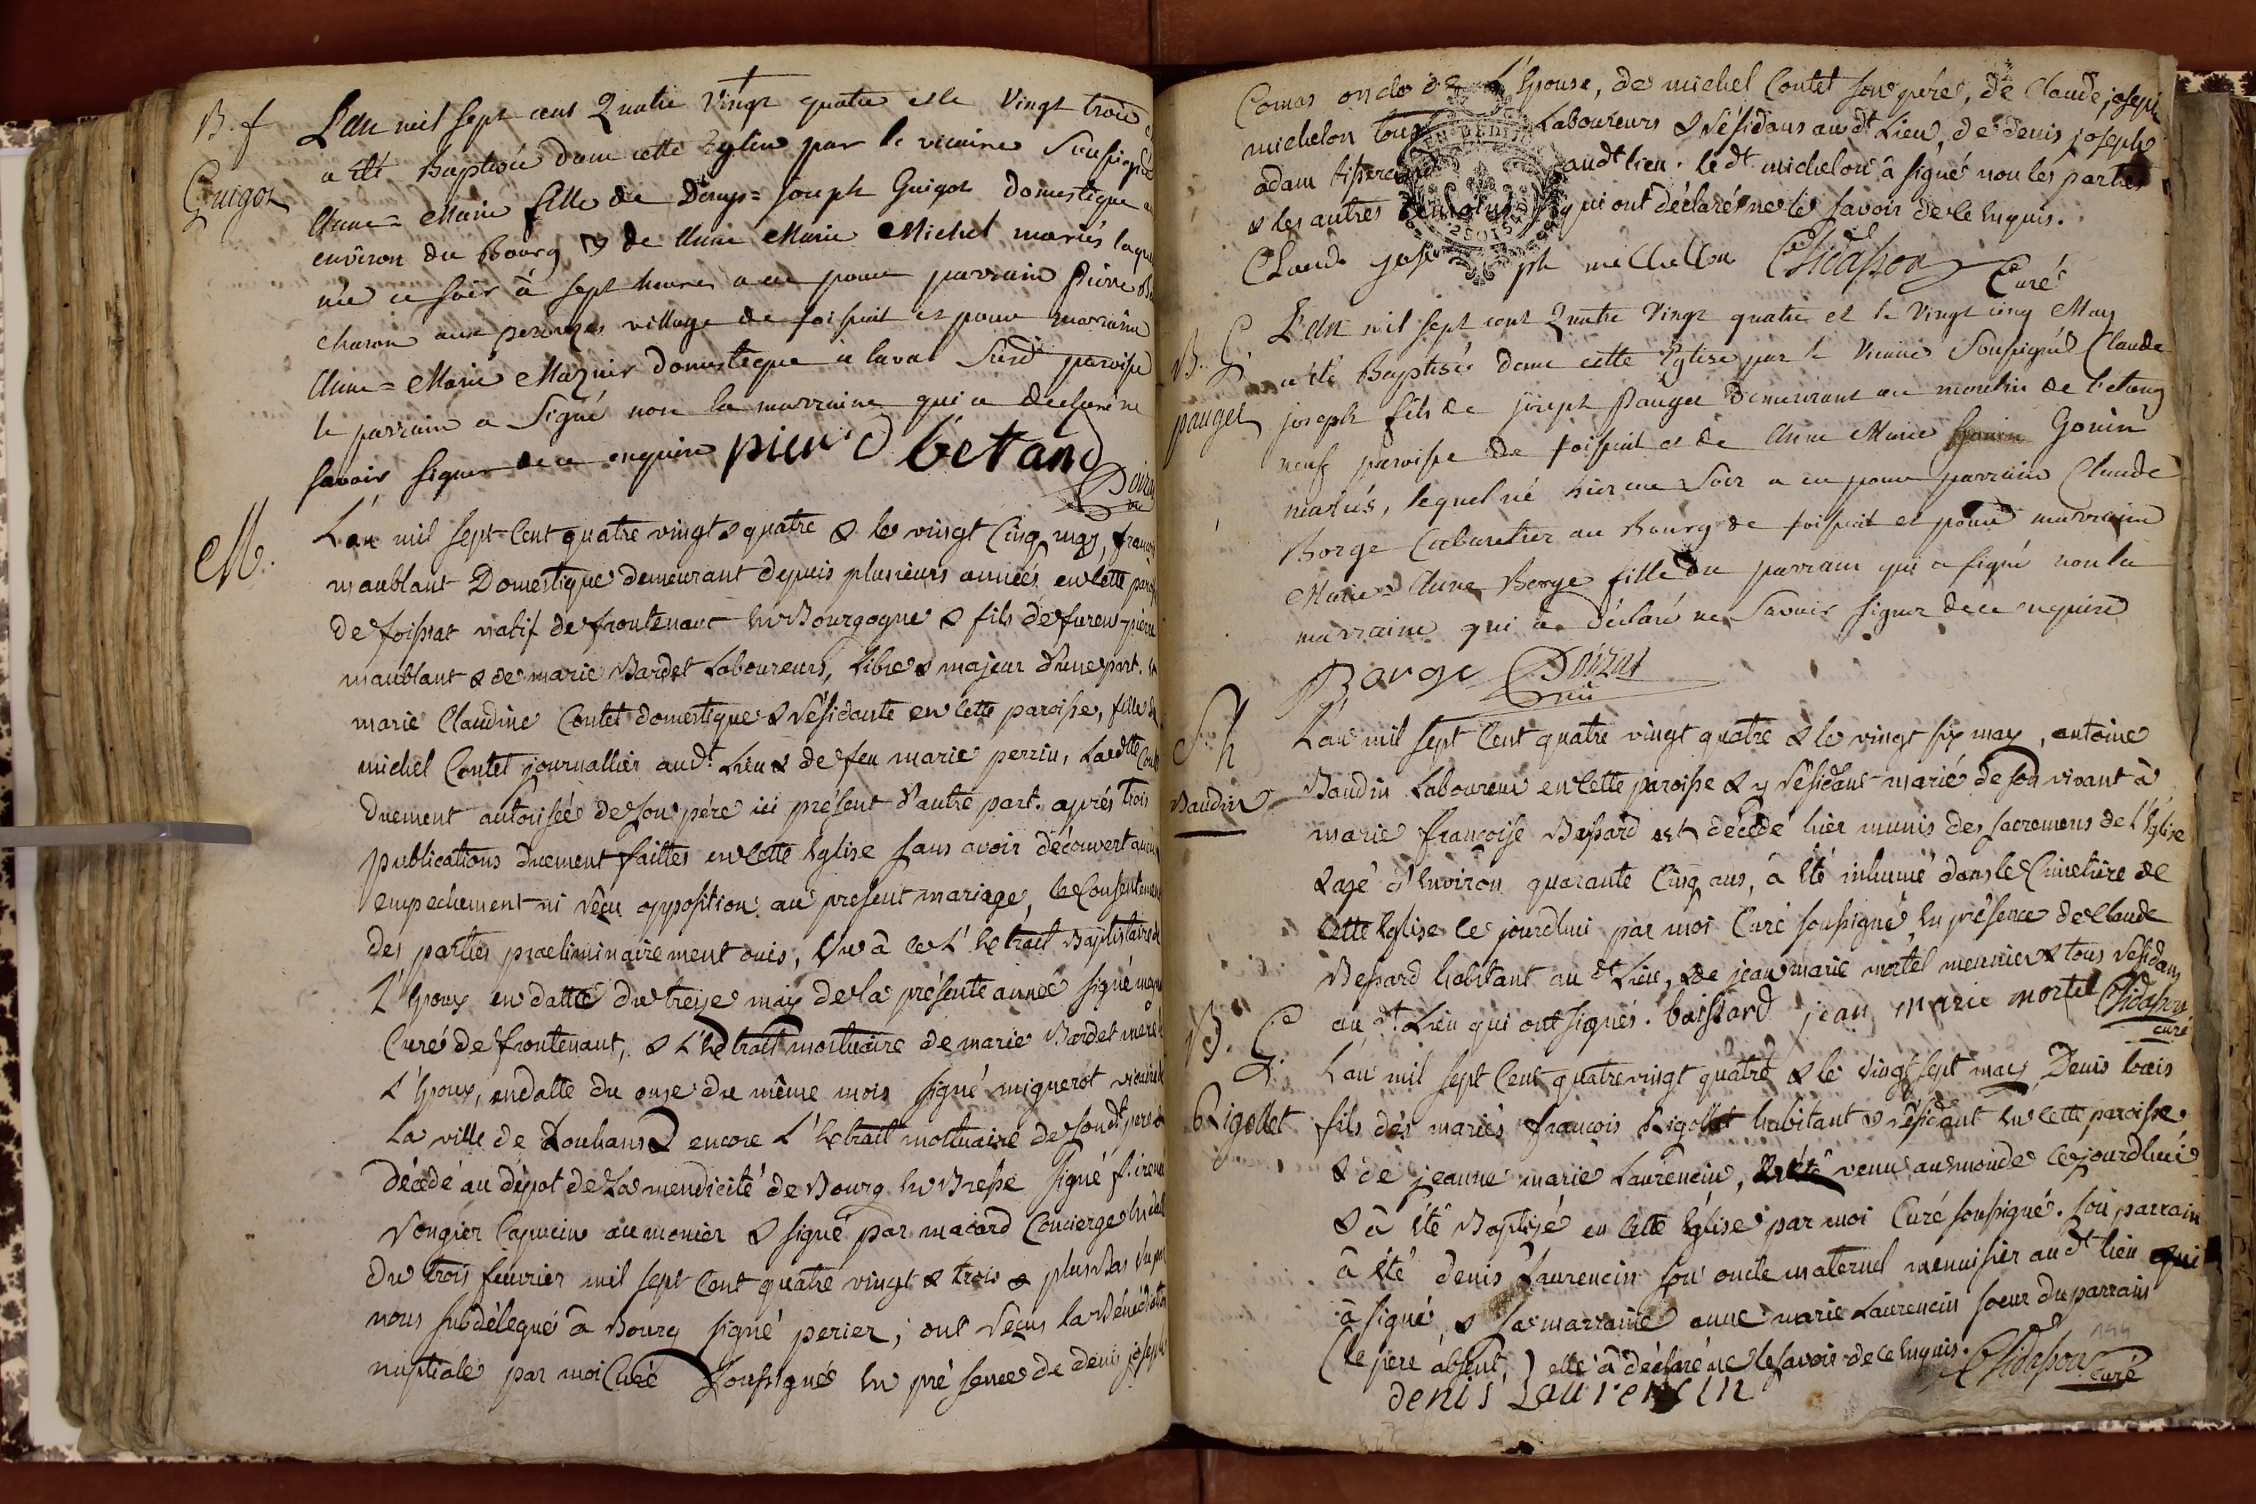 B. f
Guigot
L'an mil sept cent Quatre Vingt quatre et le Vingt trois
a été Baptisée dans cette Eglise par le vicaire Soussigné
Anne = Marie fille de Denys = joseph Guigot domestique
environ du Bourg et de Anne Marie Michel mariés laq
née ce soir à sept heures a eu pour parrain Pierre
charon aux perouzes village de foissiat et pour marraine
Anne = Marie Maznir domestique à laval Susd paroisse
le parrain a Signé non la marraine qui a déclaré ne
savoir signer de ce enquise pierre bétand
M.
L'an mil sept-Cent quatre vingt & quatre & le vingt Cinq may, françois
maublant Domestique demeurant depuis plusieurs années en Cette
de foissiat natif de frontenant en Bourgogne & fils de furent pierre
maublant & de marie Bardet Laboureurs, Libre & majeur d'une part.
marie Claudine Contet domestique & résidante en Cette paroisse, fille
michel Contet journallier audt. Lieu & de feu marie perrin, Ladtte
duement autorisée de son père ici présent d'autre part. après trois
publications duement faittes en Cette Eglise sans avoir découvert aucun
empechement ni reçu opposition au present mariage, le Consentement
des parties praeliminairement ouies, Vu à ce L'Extrait Baptistaire de
L'Epoux en datte du treize may de la présente année signé
Curé de frontenant, & L'Extrait mortuaire de marie Bardet mere
L'Epoux, en datte du onze du même mois signé miguerot vicaire
La ville de Louhans & encore L'Extrait mortuaire de son dt. pere
Décédé au dépot de La mendicité de Bourg en Bresse signé
Vongier Capucin aumonier & signé par macard Concierge
du trois fevrier mil sept Cent quatre vingt & trois & plus Bas
nous subdélegué à Bourg signé perier; ont reçus La Bénédiction
nuptiale par moi Curé Soussigné en présence de denis joseph
Comas oncle de L'Epouse, de michel Contet son père, de Claude joseph
michelon tous Laboureurs & résidans audt. Lieu, de denis joseph
adam tisserand audt lieu. le dt michelon à signé non les parties
& les autres témoins qui ont déclarés ne le savoir de ce Enquis.
Claude joseph michellon Chidasson
Curé
B. G.
pauget
L'an mil sept cent Quatre Vingt quatre et le Vingt cinq May
a été Baptisé dans cette Eglise par le Vicaire Soussigné Claude
joseph fils de joseph Pauget Demeurant au moulin de l'etang
neuf paroisse de foissiat et de Anne Marie Gonin
mariés, lequel né hier au Soir a eu pour parrain Claude
Borge Cabaretier au Bourg de foissiat et pour marraine
Marie = Anne Borge fille du parrain qui a signé non la
marraine qui a déclaré ne Savoir signer de ce enquise
Borge
S. h
Baudin
L'an mil sept Cent quatre vingt quatre & le vingt six may, antoine
Baudin Laboureur en Cette paroisse & y résidant marié de son vivant à
marie françoise Bessard est décedé hier munis des sacremens de L'Eglise
& agé d'Environ quarante Cinq ans, à été inhumé dans le Cimetière de
Cette Eglise Ce jourdhui par moi Curé soussigné, En présence de Claude
Bessard habitant au dt. Lieu, & de jean marie mortel meunier & tous résidans
au dt. Lieu qui ont signés. baissard jean marie mortel Chidasson
curé
B. G.
Rigollet
L'an mil sept Cent quatre vingt quatre & le vingt sept may Denis
fils des mariés françois Rigollet habitant & résidant En Cette paroisse
& de jeanne marie Laurencin, venu au monde Ce jourdhui
& à été Baptisé en Cette Eglise par moi Curé soussigné. son parrain
à été denis Laurencin son oncle maternel menuisier au dt lieu qui
à signé, & sa marraine anne marie Laurencin soeur du parrain
(le pere absent,) elle à déclaré ne le savoir de ce Enquis. Chidasson
curé
denis Laurencin